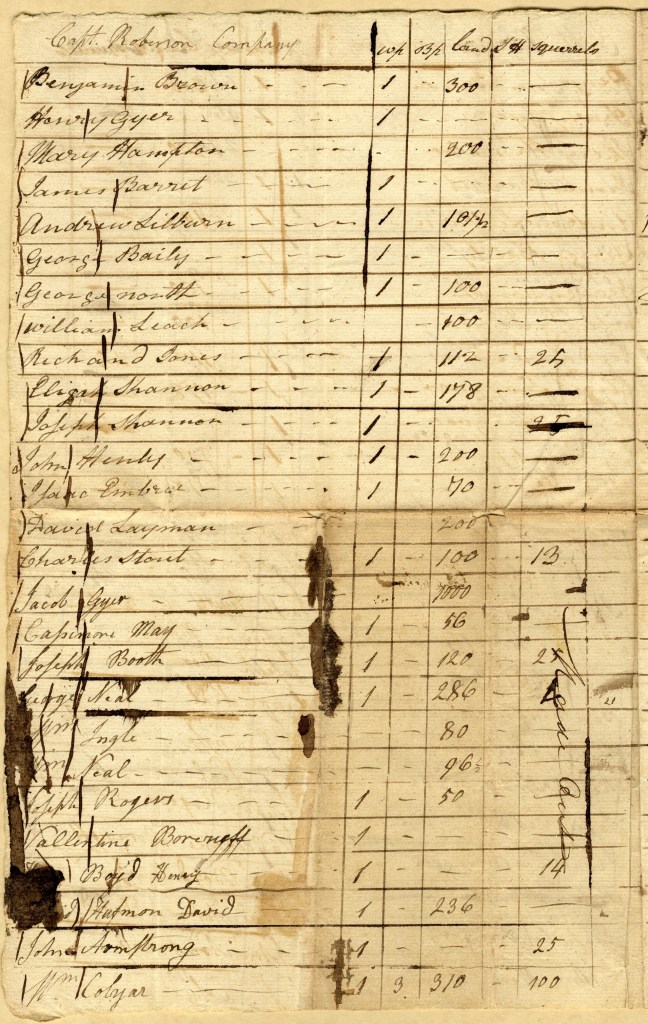 Capt. Roberson Company wp Bp land S H squerrels
Benjamin Brown 1 - 300 - —
Henry Gyer 1 - - - —
Mary Hampton - - 200 - —
James Barret 1 - - - —
Andrew Lilburn 1 - 101½ —
George Baily 1 - - - —
George north 1 - 100 - —
William Leach - 100 —
Richard Jones 1 - 112 - 25
Elijah Shannon 1 - 178 —
Joseph Shannon 1 25
John Henly 1 - 200 - —
Isaac Embree 1 70 - —
David Layman 200
Charles Stout 1 - 100 - 13
Jacob Gyer 1000
Capimore May 1 - 56
Joseph Booth 1 - 120 25
George Neal 1 - 286
Wm Ingle 80
Wm Neal 96½
Joseph Rogers 1 - 50
Vallentine Boreuff 1 -
Boyd Henry 1 - — — 14
Hatmon David 1 - 236 —
John Armstrong 1 - — - 25
Wm Cobyar 1 3 310 - 100
Made